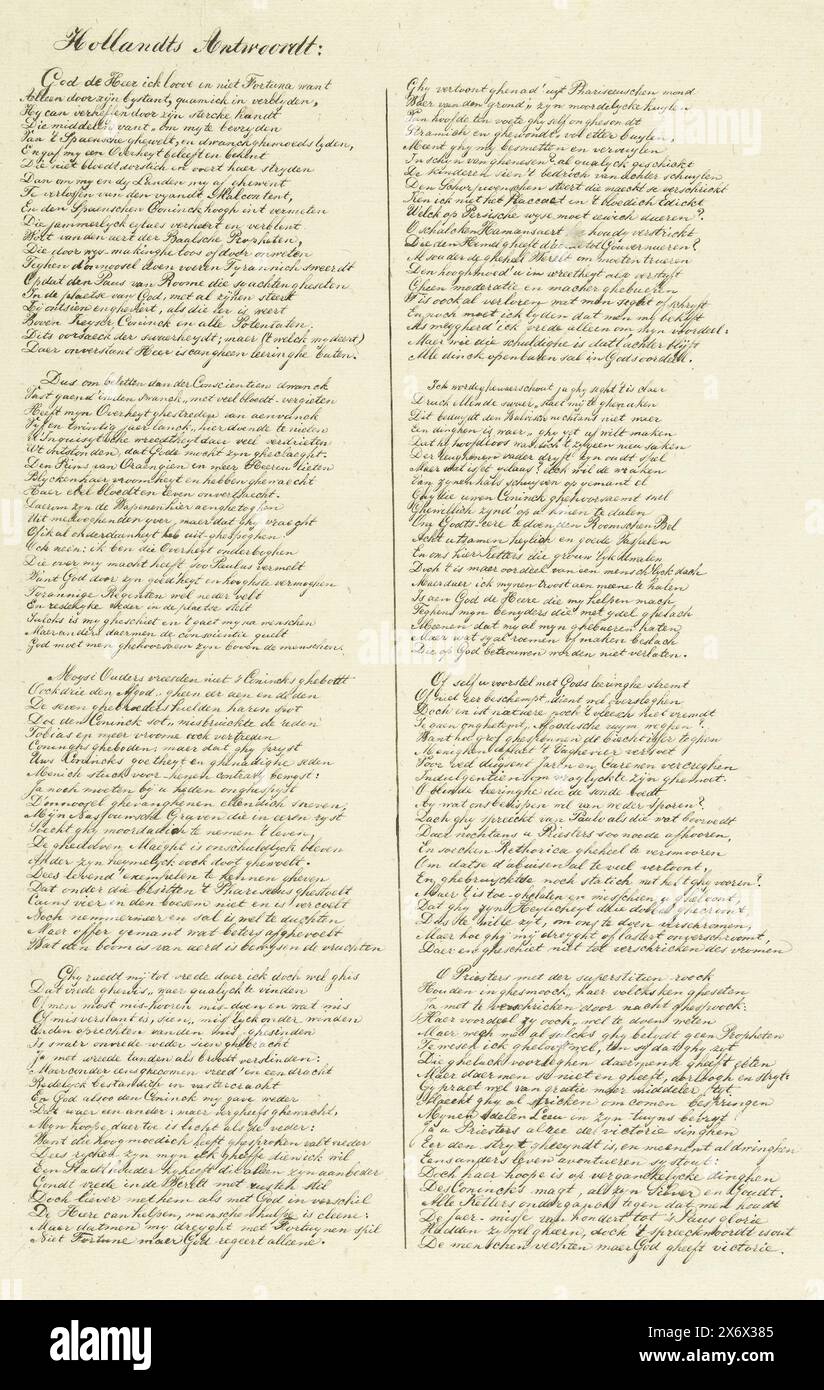 Hollandts Antwoordt:
God de Heer ick loove en niet Fortuna want
Alleen door zijn bystant, quam ick in verblyden,
Hy can verheffen door zijn stercke handt
Die middelen want, om my te bevryden
Van 't Spaensche ghewelt, en dwanck ghemoedts lyden,
En gaf my een Overheyt beleeft en bekent
Die niet bloedtdorstich en voert haer stryden
Dan om my en dy Landen my af ghewent
Te verlossen van den vyandt Malcontent,
En den Spaenschen Coninck hoogh in't vermeten
Die jammerlyck eylaes vervoert en verblent
Wort vanden aert der Baalsche Propheten,
Die door wys-makinghe loos of door onweten
Teghen d'onnoosel doen voeren Tyrannich sweerdt
Opdat den Paus van Roome die
In de plaetse van God, met al zijnen sterk
Zy ontsien en gheeert, als die er is weert
Boven Keyser Coninck en alle Potentaten,
Dits oorsaeck der swaerheydt; maer ('t welck my deert)
Daer onverstant Heer is can gheen leeringhe baten.
Dus om beletten dander Conscientien dwanck
Vast gaend' in den swanck, met veel bloedt-vergieten
Heeft myn Overheyt ghestreden van aenvanck
Vijf en twintig jaer lanck, hier doende te nielen
U Inquisytische wreedtheyt daer veel verdrieten
Wt ontstonden, dat Gode mocht zyn gheclaeght.
Den Prins van Oraengien en meer Heeren lieten
Blycken haer vroomheyt en hebben ghewaecht
Haer edel bloedt en leven onvertsaecht.
Daerom zyn de Wapenen hier aenghetoghen
Uit medooghenden yver, maer dat ghy vraecht
Of ik al eherdaenheyt heb uit-ghespoghen
Och neen: ik ben die Overheyt onderboghen
Die over my macht heeft soo Paulus vermelt
Want God door zyn goedtheyt en hooghste vermoghen
Tyrannige Regenten wel neder velt
En redelyke weder in de plaetse stelt
Sulchs is my gheschiet en 't gaet my na menschen
Maer anders daermen de conscientie quelt
God moet men ghehoorsaem zyn boven de menschen.
Moysi Ouders vreesden niet 's Conincks ghebodt
Oock drie den Afgod, gheen eer aen en deden
De seven ghebroeders hielden haren spot
Doe den Coninck sot, misbruickte de reden
Tobias en meer vroome oock vertreden
Conincks gheboden; maer dat ghy pryst
Uws Conincks goetheyt en ghenadighe seden
Menich stuck voor-henen contrary bewyst:
Ja noch moeten by u heden onghespyst
D'onnoosel ghevanghenen ellendich sneven,
Mijn Nassouwsche Graven die in eeren ryst
Soeckt ghy moordadich te nemen 't leven,
De gheedtoven Maeght is onschuldlyck bleven
Ander zyn heymelyck oock doot ghewelt.
Dees levend' exempelen te kennen gheven
Dat onder die besitten 't Phareseus ghestoelt
Cains vier en den boesem niet en is vercoelt
Noch nemmermeer en sal is wel te duchten
Maer offer yemant wat beters af ghevoelt
Wat den boom is van aerd is bewysen de vruchten
Ghy raedt my tot vrede daer ick doch wel ghis
Dat vrede ghewis, waer qualyck te vinden
Of men most mis-hooren mis-doen en wat mis
Of misverstant is, sien, mislyck onder winden
En den oprechten vanden mis ghesinden
Is swaer onvrede weder sien ghebracht
Ja met wreede tanden als broodt verslinden:
Maer onder eens ghecomen vreed' en eendracht
Redelyck bestandich in vaster cracht
En God alsoo den Coninck my gave weder
Dat waer een ander; maer vergheefs ghewacht,
Myn hoope daer toe is licht als de veder:
Want die hoog moedich heeft ghesproken valt neder
Dees rycken zyn myn ick gheefse dien ick wil
Een Stadthouder hy heeft die allen zyn aanbeder
Gondt vrede in de Werelt met rusten stil
Doch liever met hem als met God in verschil
De Heere can helpen, menschen hulpe is cleene:
Maer datmen my dreyght met Fortuynen spil
Niet Fortune maer God regeert alleene.
Ghy vertoont ghenad' uyt Phariseeuschen mond
Waer van den grond, zyn moordelycke kuylen
Van hoofde ten voete ghy self onghesondt
Stramich en ghewondt, vol etter buylen,
Meent ghy my besmetten en vervuylen
In schyn van ghenesen? al qualyck geschickt
De kinderen sien 't bedroch van achter schuylen
Den Schorpioenschen steert die maeckt se verschrickt
Ken ick niet het Raccaet en 't bloedich edickt
Welck op Persische wyse moet eewich dueren?
O schalcken Hamans aert houdy verstrickt
Die den Hemel gheeft dre Gouverneeren?
Al soude de gheheel Werelt om moeten trueren
Den hooghmoed' u in wreetheyt alzo verstyft
Gheen moderatie en macher ghebueren
't Is oock al verloren wat men seght of schryft
En noch moet ick lyden dat men my bekyft
Als meygherd ick vrede alleen om myn voordeel:
Maer wie die schuldighe is dat achter blijft
Alle dinck openbaren sal in Gods oordeel.
Ick worde ghewaerschout ja ghy seght 't is claer
Druck ellende swaer, staet my te ghenaken
Dit beduydt den nochtans niet waer
Een dinghen is waer, ghy 't wilt maken
Dat hy hoofdeloos was, doch 't zijgeen nieu saken
Der leughenen vader dryft zyn oudt spel
Maer wat is 't ylaas? ick wil de wraken
Van zynen hals schuyven op yemant el
Ghy die uwen Coninck ghehoorsaemt snel
Ghewillich zynd' op u knien te dalen
Om Godts eere te doen den Roomschen Bel
Acht u t'samen heylich en goede Vassalen
En ons hier Ketters die grouwelyck dwalen
Doch 't is maer oordeel van een menschlyck dach
Maer daer ick mynen troost aen meene te halen
Is aen God de Heere die my helpen mach
Teghens myn benyders die met ydel ghelach
Meenen dat my al myn ghebueren haten
Maer wat sy al roemen of maken beslach
Die op God betrouwen worden niet verlaten.
Of self u voorstel met Gods leeringhe stremt
Of niet eer beschempt, dient wel overslegghen
Doch en ist nature noch 't vleesch niet vremdt
't Gaen onghetemt,
Want het grof ghespannen de Biecht is er teghen
Menighen Aflaet 't Vaghevier versoet
Voor veel duysent Jaren, en Carenen vercreghen
Indulgentien om moghlyckte zijn ghemoet.
O blinde leeringhe die de sonde voedt
Ay wat ons beryspen wil van weder sporen?
Dach ghy spreeckt van Paulo als die wat bevroedt
Daer nochtans u Priesters soo noode af hooren,
En soecken Rethorica gheheel te versmooren
Om datse d'abuisen al te veel vertoont,
En ghebruyckt se noch statich wat hebt ghy vooren?
Maer 't is toe-ghelaten en misschien u gheloont,
Dat ghy zijn Heylicheyt alle doo ghecroont,
Dies te wille zyt, om ons te doen verschromen,
Maer hoe ghy my dreyght of lastert onverschoomt,
Daer en gheschiet niet tot verschricken des vromen
O Priesters met der superstitien roock
Houden in ghesmoock, haer volckshen gheseten
Ja met te verschricken door nacht ghespoock:
Haer voordeel zy ooch, wel te doen weten
Maer wegh met al sulcks ghy belydt geen Propheten
Te wesen ick gheloof wel, en so dat ghy zyt
Die ghelucks voorsegghen daermenk gheeft eten
Maer daermen se niet en gheeft, oorlogh en stryt:
Gy praet wel van gratie meer middeler tyt
Wylaecht ghy al stricken om comen bespringen
Mynen edelen Leeu in zyn tuyns bevryt
Ja u Priesters alree de victorie singhen
Eer den stryt gheeyndt is, en meenen 't al dwinghen
Eens anders leven avontueren sy stout:
Doch haer hoope is op verganckelycke dinghen
Des Conincks magt, als zyn Silver en Goudt.
Alle Ketters ondergaen tegen dat men houdt
De jaer-misse van hondert tot 's Paus glorie
Hadden zy wel gheern, doch 't spreeckwoordt is out
De menschen vechten maer God gheeft victorie.